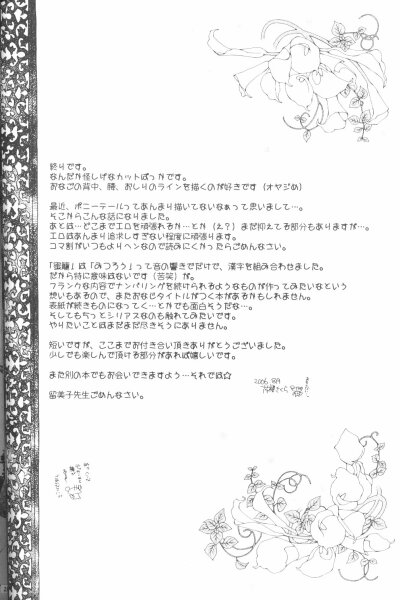 終りです。
なんだか怪しげなカットばっかです。
おなごの背中、腰、おしりのラインを描くのが好きです（オヤジめ
最近、ポニーテールってあんまり描いてないなぁって思いまして…。
そこからこんな話になりました。
あとは…どこまでエロを頑張れるか…とか（え？）まだ抑えてる部分もありますが…。
エロはあんまり追求しすぎない程度に頑張ります。
コマ割がいつもよりヘンなので読みにくかったらごめんなさい。
「蜜籠」は「みつろう」って音の響きでだけで、漢字を組み合わせました。
だから特に意味はないです（苦笑）が、
フランクな内容でナンバリングを続けられるようなものが作ってみたいなという
想いもあるので、またおなじタイトルがつく本があるかもしれません。
表紙が続きものになってく…とかでも面白そうだな…。
そしてもちっとシリアスなのも触れてみたいです。
やりたいことはまだまだ尽きそうにありません。
短いですが、ここまでお付き合い頂きありがとうございました。
少しでも楽しんで頂ける部分があれば嬉しいです。
また別の本でもお会いできますよう…それでは☆
留美子先生ごめんなさい。